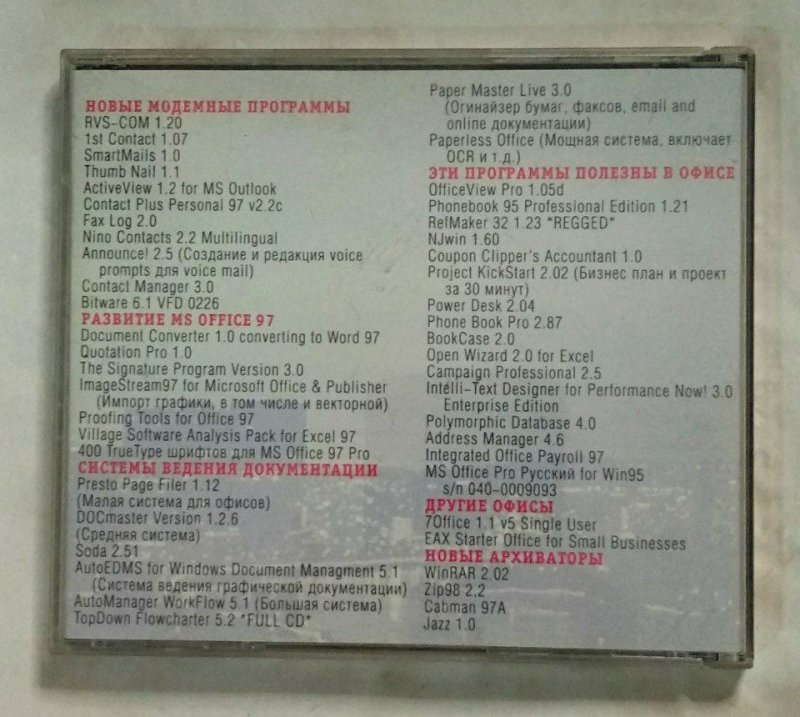 НОВЫЕ МОДЕМНЫЕ ПРОГРАММЫ
RVS-COM 1.20
1st Contact 1.07
SmartMails 1.0
Thumb Nail 1.1
ActiveView 1.2 for MS Outlook
Contact Plus Personal 97 v2.2c
Fax Log 2.0
Nino Contacts 2.2 Multilingual
Announce! 2.5 (Создание и редакция voice
prompts для voice mail)
Contact Manager 3.0
Bitware 6.1 VFD 0226
РАЗВИТИЕ MS OFFICE 97
Document Converter 1.0 converting to Word 97
Quotation Pro 1.0
The Signature Program Version 3.0
ImageStream97 for Microsoft Office & Publisher
(Импорт графики, в том числе и векторной)
Proofing Tools for Office 97
Village Software Analysis Pack for Excel 97
400 TrueType шрифтов для MS Office 97 Pro
СИСТЕМЫ ВЕДЕНИЯ ДОКУМЕНТАЦИИ
Presto Page Filer 1.12
(Малая система для офисов)
DOCmaster Version 1.2.6
(Средняя система)
Soda 2.51
AutoEDMS for Windows Document Managment 5.1
(Система ведения графической документации)
AutoManager WorkFlow 5.1 (Большая система)
TopDown Flowcharter 5.2 *FULL CD*
Paper Master Live 3.0
(Огинайзер бумаг, факсов, email and
online документации)
Paperless Office (Мощная система, включает
OCR и т.д.)
ЭТИ ПРОГРАММЫ ПОЛЕЗНЫ В ОФИСЕ
OfficeView Pro 1.05d
Phonebook 95 Professional Edition 1.21
RefMaker 32 1.23 *REGGED*
NJwin 1.60
Coupon Clipper's Accountant 1.0
Project KickStart 2.02 (Бизнес план и проект
за 30 минут)
Power Desk 2.04
Phone Book Pro 2.87
BookCase 2.0
Open Wizard 2.0 for Excel
Campaign Professional 2.5
Intelli-Text Designer for Performance Now! 3.0
Enterprise Edition
Polymorphic Database 4.0
Address Manager 4.6
Integrated Office Payroll 97
MS Office Pro Русский for Win95
s/n 040-0009093
ДРУГИЕ ОФИСЫ
7Office 1.1 v5 Single User
EAX Starter Office for Small Businesses
НОВЫЕ АРХИВАТОРЫ
WinRAR 2.02
Zip98 2.2
Cabman 97A
Jazz 1.0